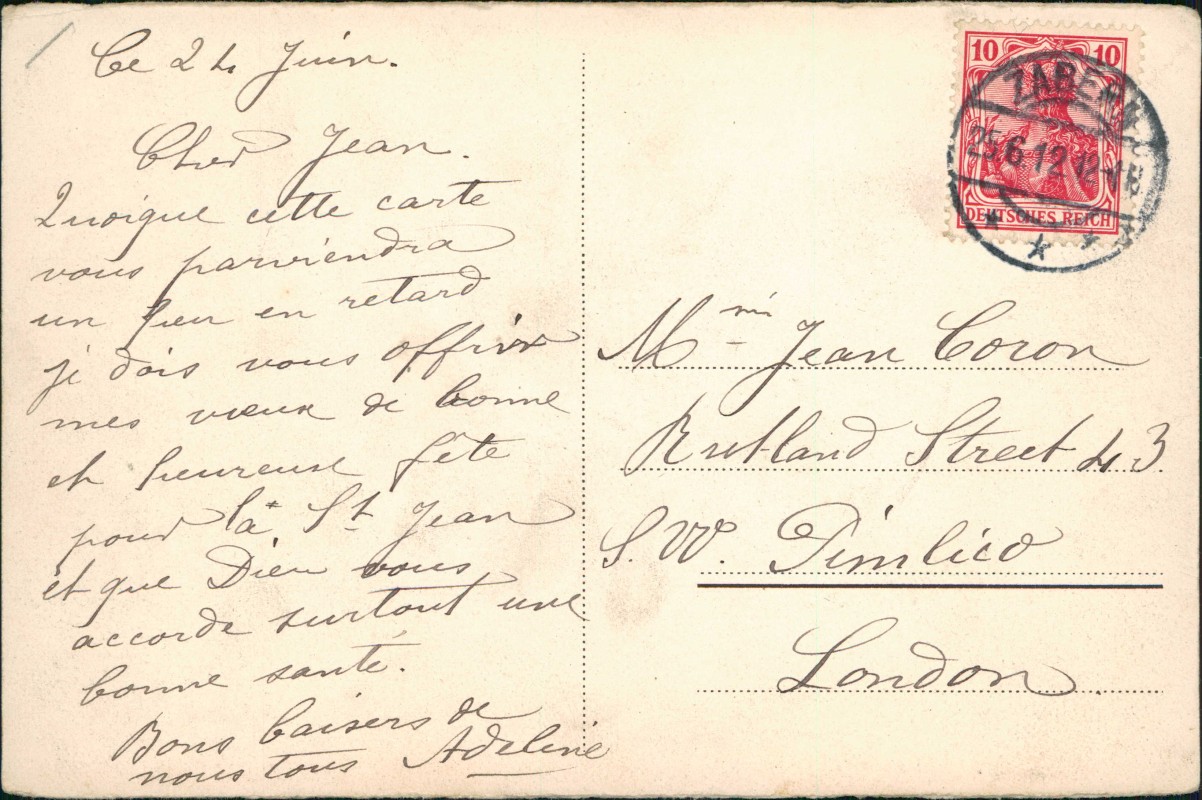 Ce 24 Juin.
Cher Jean.
Quoique cette carte
vous parviendra
un peu en retard
je dois vous offrir
mes vœux de bonne
et heureuse fête
pour la St Jean
et que Dieu vous
accorde surtout une
bonne santé.
Bons baisers de
nous tous Adeline
10 10
ZABERN
25.6.12 12-1N
DEUTSCHES REICH
Jean Coron
Rutland Street 43
S. W. Pimlico
London